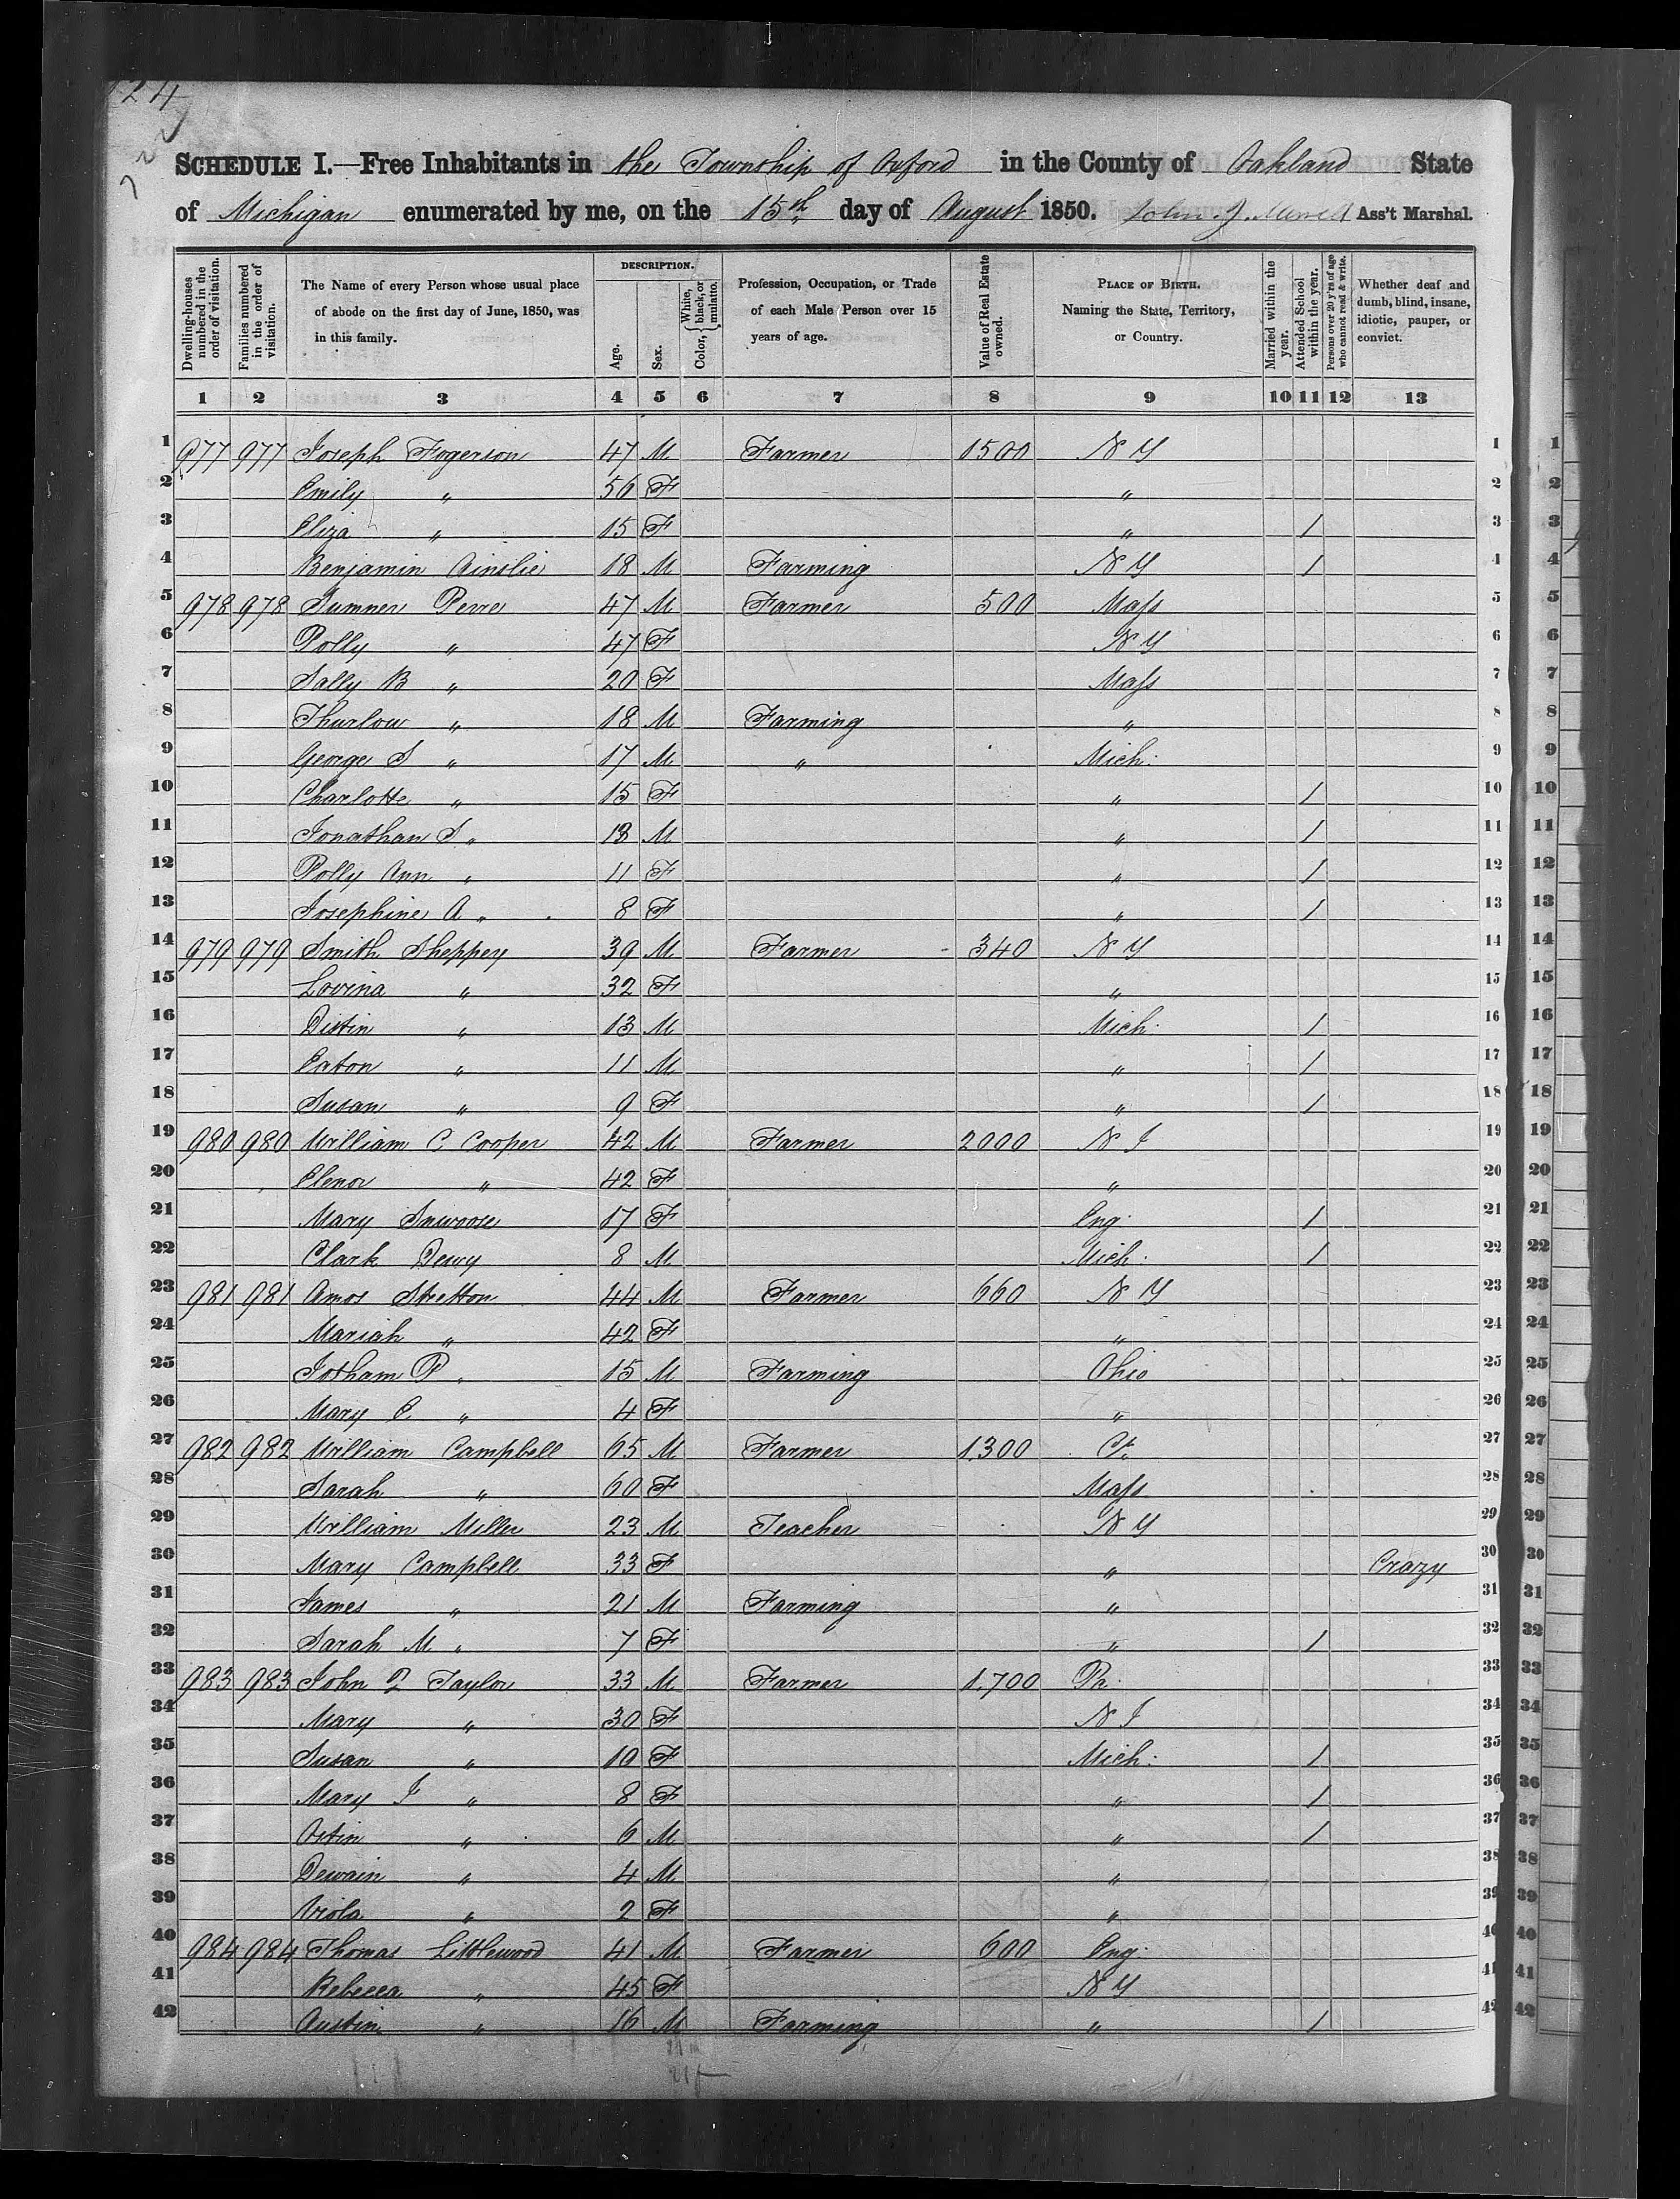 124
SCHEDULE I.—Free Inhabitants in the Township of Oxford in the County of Oakland State
of Michigan enumerated by me, on the 15th day of August 1850. John J. Ass't Marshal.
Dwelling-houses numbered in the order of visitation.
Families numbered in the order of visitation.
The Name of every Person whose usual place of abode on the first day of June, 1850, was in this family.
DESCRIPTION.
Age.
Sex.
Color, { White, black, or mulatto.
Profession, Occupation, or Trade of each Male Person over 15 years of age.
Value of Real Estate owned.
PLACE OF BIRTH. Naming the State, Territory, or Country.
Married within the year.
Attended School within the year.
Persons over 20 y'rs of age who cannot read & write.
Whether deaf and dumb, blind, insane, idiotic, pauper, or convict.
1 2 3 4 5 6 7 8 9 10 11 12 13
1 977 977 Joseph Fogerson 47 M Farmer 1500 N Y 1
2 Emily " 56 F " 2
3 Eliza " 15 F " 1 3
4 Benjamin Ainslie 18 M Farming N Y 1 4
5 978 978 Sumner Perre 47 M Farmer 500 Mass 5
6 Polly " 47 F N Y 6
7 Sally B " 20 F Mass 7
8 Thurlow " 18 M Farming " 8
9 George S " 17 M " Mich. 9
10 Charlotte " 15 F " 1 10
11 Jonathan S " 13 M " 1 11
12 Polly Ann " 11 F " 1 12
13 Josephine A " 8 F " 1 13
14 979 979 Smith Sheppey 39 M Farmer 340 N Y 14
15 Lovina " 32 F " 15
16 Distin " 13 M Mich. 1 16
17 Eaton " 11 M " 1 17
18 Susan " 9 F " 1 18
19 980 980 William C Cooper 42 M Farmer 2000 N J 19
20 Elenor " 42 F " 20
21 Mary Snwoose 17 F Eng. 1 21
22 Clark Dewy 8 M Mich. 1 22
23 981 981 Amos Stretton 44 M Farmer 660 N Y 23
24 Mariah " 42 F " 24
25 Jotham P " 15 M Farming Ohio 25
26 Mary E " 4 F " 26
27 982 982 William Campbell 65 M Farmer 1,300 Ct. 27
28 Sarah " 60 F Mass 28
29 William Miller 23 M Teacher N Y 29
30 Mary Campbell 33 F " Crazy 30
31 James " 21 M Farming " 31
32 Sarah M " 7 F " 1 32
33 983 983 John Q Taylor 33 M Farmer 1,700 Pa. 33
34 Mary " 30 F N J 34
35 Susan " 10 F Mich. 1 35
36 Mary J " 8 F " 1 36
37 Ostin " 6 M " 1 37
38 Dewain " 4 M " 38
39 Viola " 2 F " 39
40 984 984 Thomas Littlewood 41 M Farmer 600 Eng. 40
41 Rebecca " 45 F N Y 41
42 Austin " 16 M Farming " 1 42